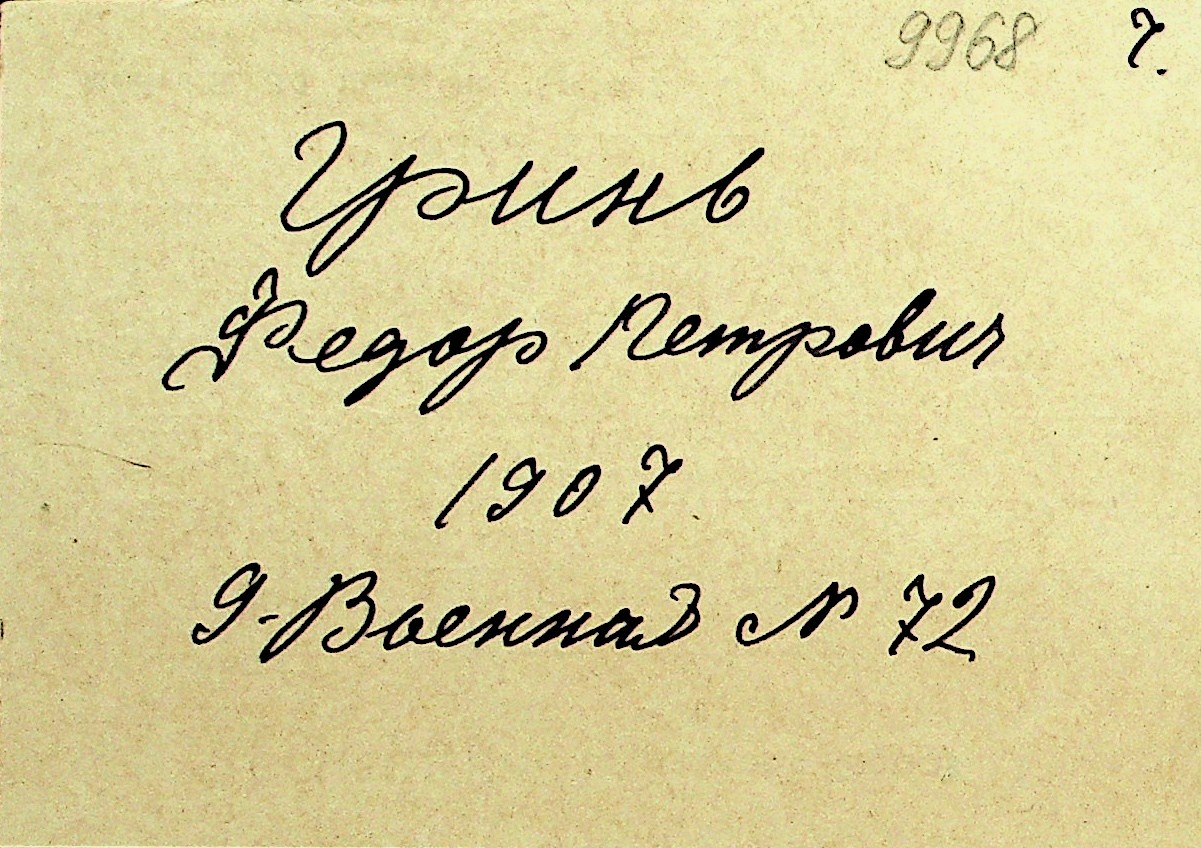 9968 7.
Гринь
Федор Петрович
1907
9-Военная № 72